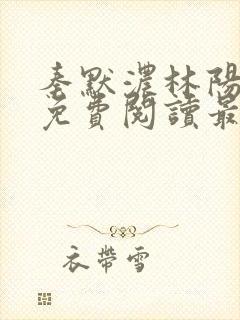 秦默濃林陽
免費閱讀最
衣帶雪